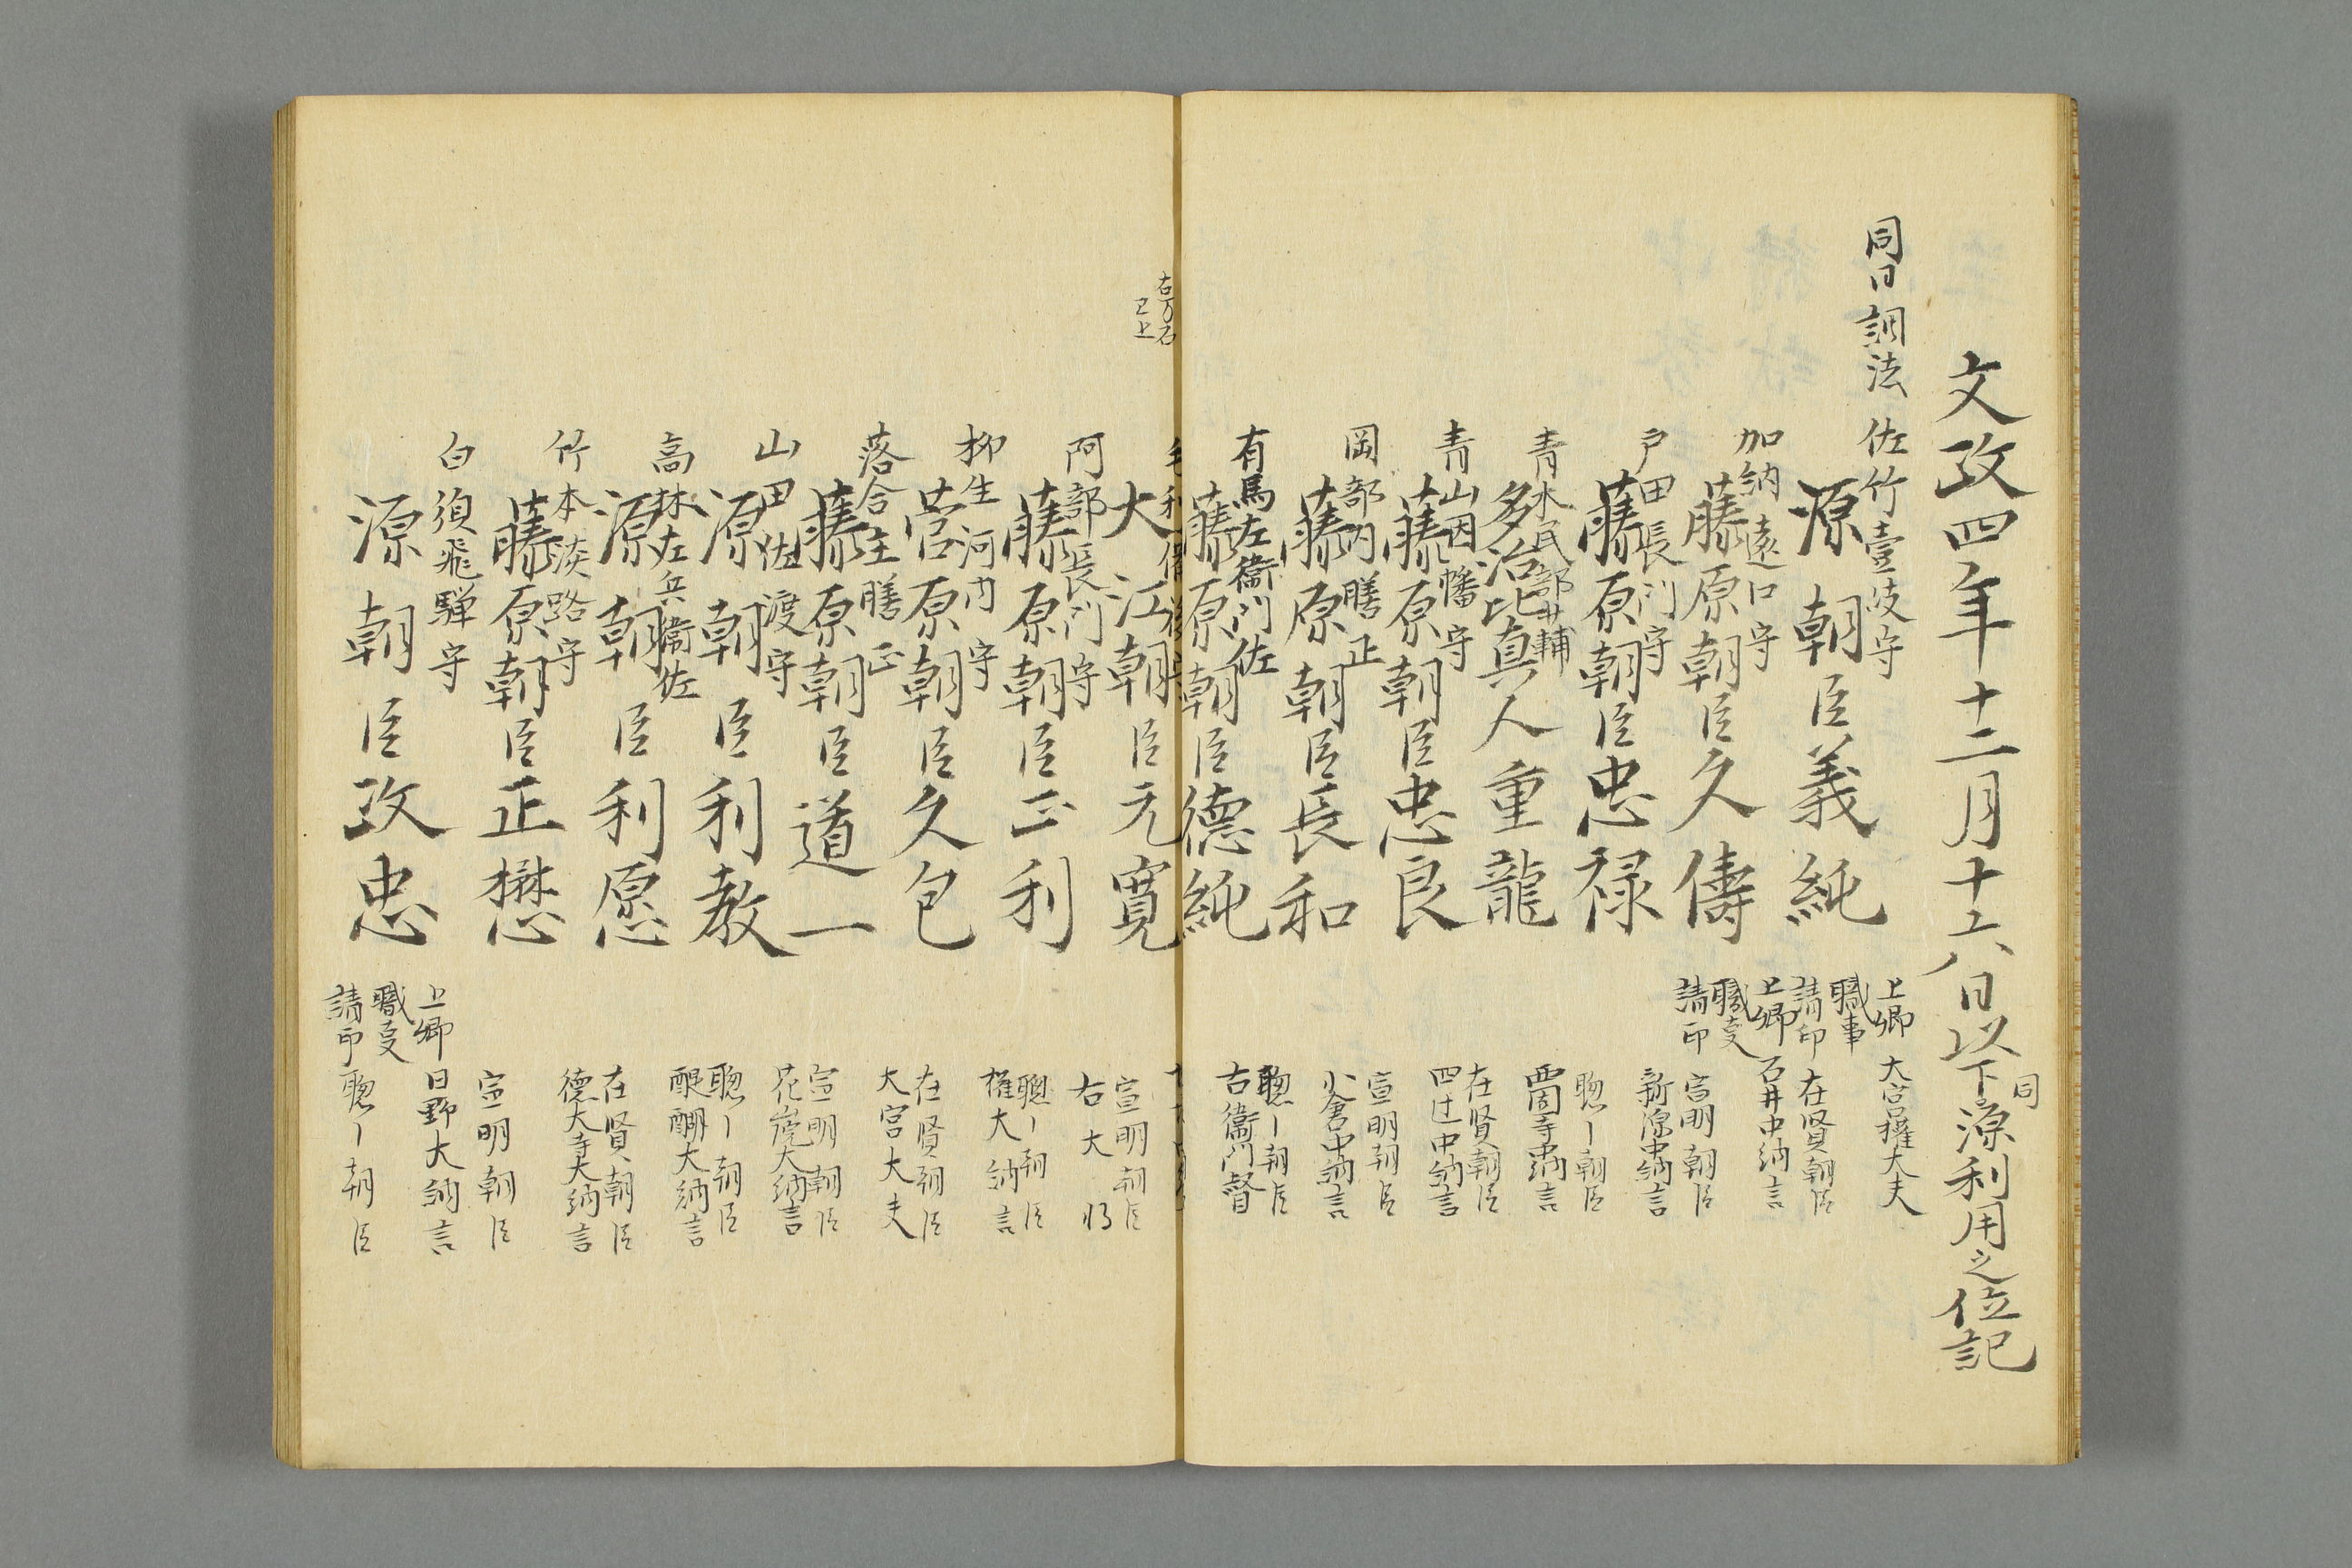 文政四年十二月十六日以下源利用之位記
同
同日調法
佐竹壹岐守
源朝臣義純
上卿 大宮権大夫
職事
請印 在賢朝臣
加納遠江守
藤原朝臣久儔
上卿 石井中納言
職事 宣明朝臣
請印 新源中納言
戸田長門守
藤原朝臣忠禄
聡ー朝臣
西園寺中納言
青木民部少輔
多治比真人重龍
在賢朝臣
四辻中納言
青山因幡守
藤原朝臣忠良
宣明朝臣
小倉中納言
岡部内膳正
藤原朝臣長和
聡ー朝臣
右衛門督
有馬左衛門佐
藤原朝臣徳純
右万石
已上
大江朝臣元寛
宣明朝臣
右大将
阿部長門守
藤原朝臣正利
聡ー朝臣
権大納言
柳生河内守
菅原朝臣久包
在賢朝臣
大宮大夫
落合主膳正
藤原朝臣道一
宣明朝臣
花山院大納言
山田佐渡守
源朝臣利教
聡ー朝臣
醍醐大納言
高林左兵衛佐
源朝臣利愿
在賢朝臣
徳大寺大納言
竹本淡路守
藤原朝臣正懋
宣明朝臣
白須飛騨守
源朝臣政忠
上卿 日野大納言
職事
請印 聡ー朝臣